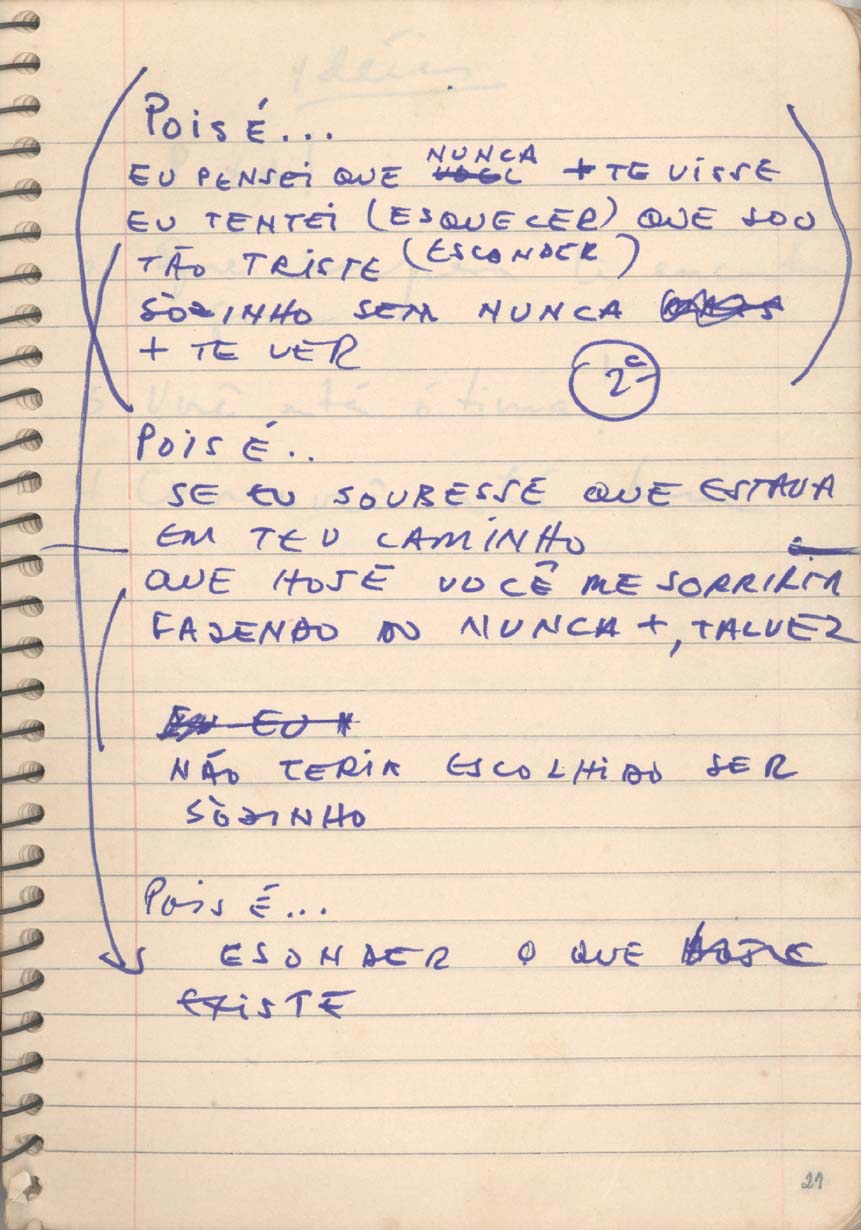 POIS É...
NUNCA
EU PENSEI QUE + TE VISSE
EU TENTEI (ESQUECER) QUE SOU
TÃO TRISTE (ESCONDER)
SÒZINHO SEM NUNCA
+ TE VER
2ª
POIS É..
SE EU SOUBESSE QUE ESTAVA
EM TEU CAMINHO
QUE HOJE VOCÊ ME SORRIRIA
FAZENDO DO NUNCA +, TALVEZ
EU
NÃO TERIA ESCOLHIDO SER
SÒZINHO
POIS É...
ESONDER O QUE
EXISTE
21